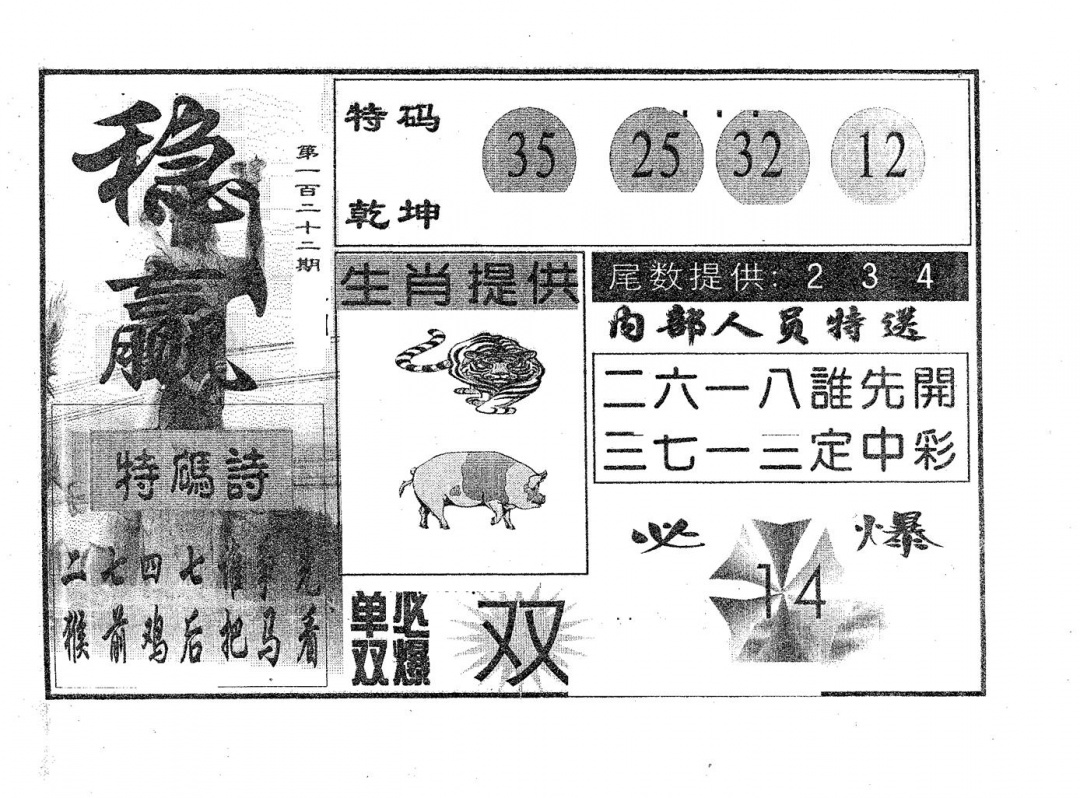 稳赢
第一百二十二期
特码诗
二七四七谁争先
猴前鸡后把马看
特码
乾坤
35 25 32 12
生肖提供
单双必爆
双
尾数提供: 2 3 4
内部人员特送
二六一八誰先開
三七一三定中彩
必爆
14